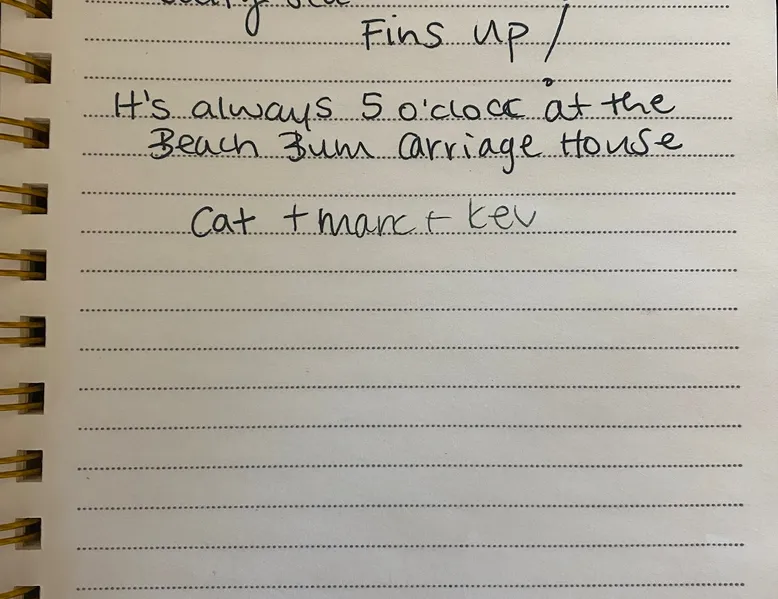 Fins up!
It's always 5 o'clock at the
Beach Bum Carriage House
Cat + marc + kev